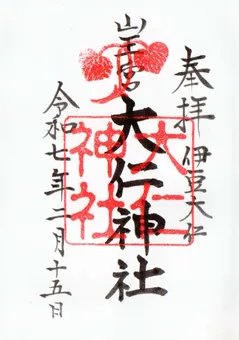 奉拝 伊豆大仁
山王宮
大仁神社
大仁神社
令和七年二月十五日